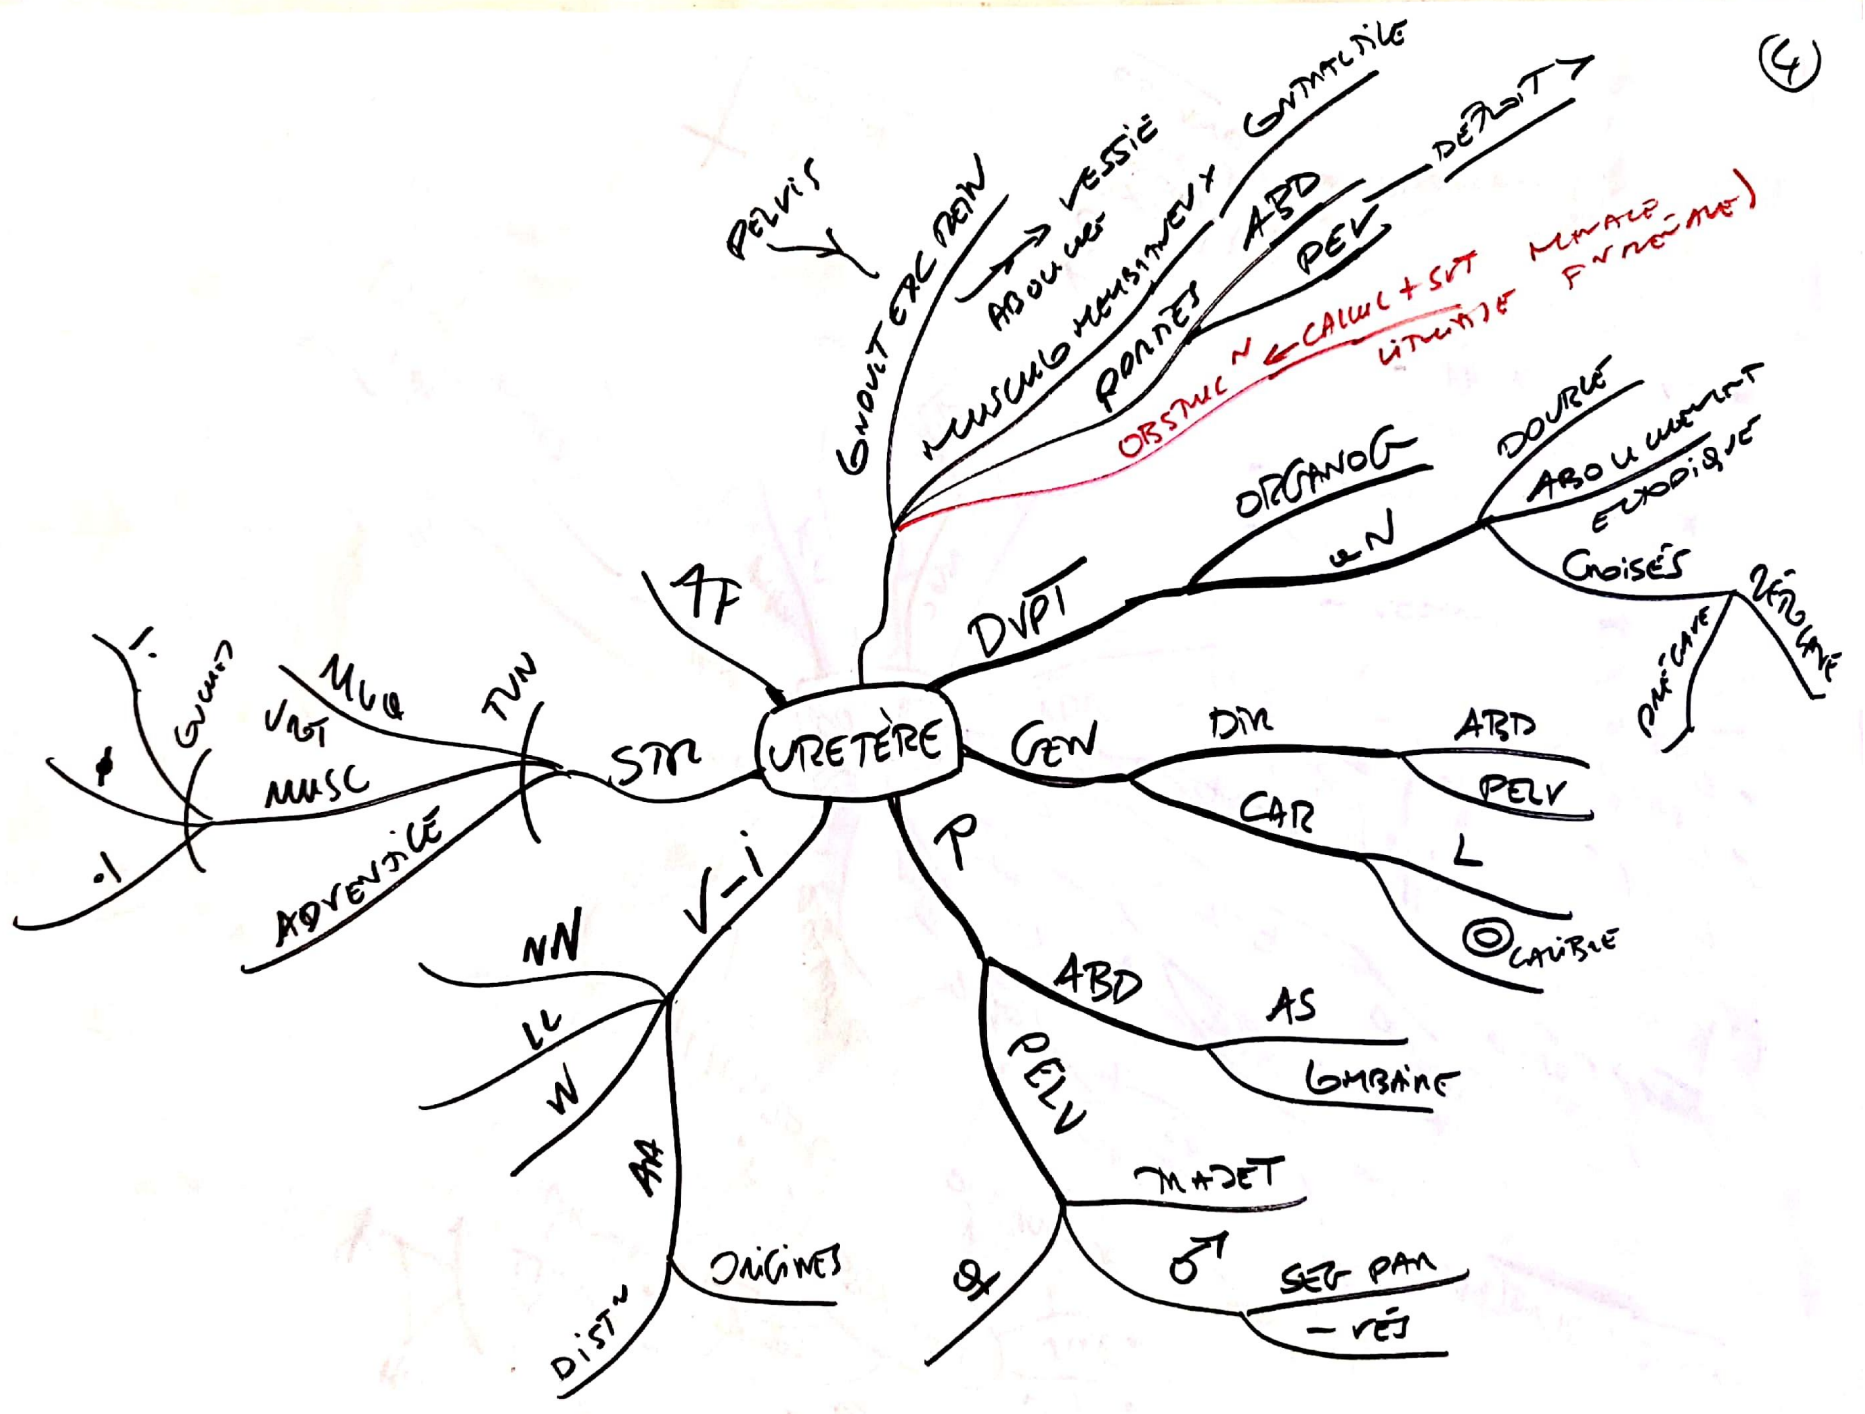 4
PELVIS
CONDUIT EXC REIN
VESSIE
ABOUCHE
MUSCULO MEMBRANEUX
CONTRACTILE
PORTIES
ABD
PELV
DÉTROIT
OBSTRUC N ← CALCUL + SVT
LITHIASE
MENACE
FN RÉNALE)
URETÈRE
DVPT
ORGANOG
DOUBLE
ABOUCHEMENT
ECTOPIQUE
CROISÉS
PRÉCAVE
RÉTROCAVE
GEN
DIR
ABD
PELV
CAR
L
CALIBRE
R
ABD
AS
LOMBAIRE
PELV
PARIET
♂
SEG PAR
- VÉS
♀
V-i
NN
LL
VV
AA
ORIGINES
DIST N
STR
TUN
MUQ
URET
MUSC
ADVENTICE
COUCHES
AF